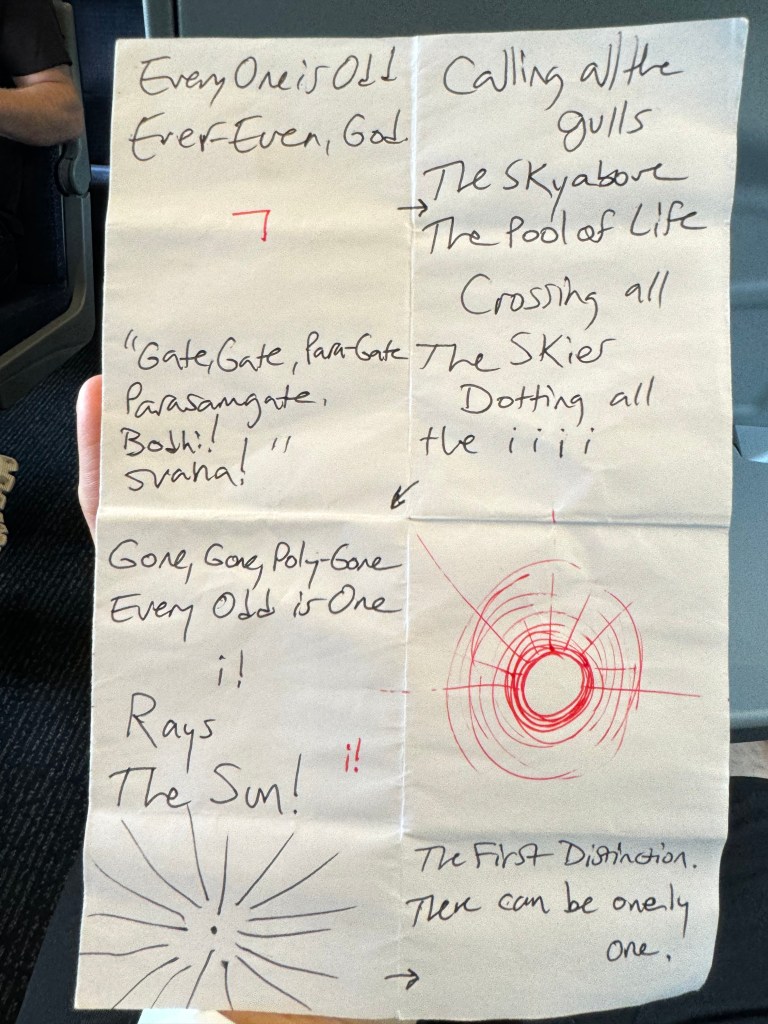 Every One is Odd
Ever-Even, God
"Gate, Gate, Para-Gate
Parasamgate,
Bodhi!
svaha!"
Calling all the
gulls
The Sky above
The Pool of Life
Crossing all
The Skies
Dotting all
the i i i i
Gone, Gone, Poly-Gone
Every Odd is One
i!
Rays
i!
The Sun!
The First Distinction.
There can be onely
one.